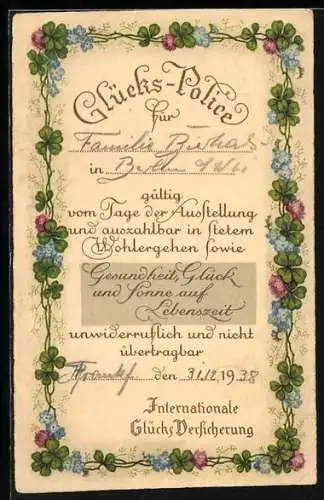 Glücks-Police
für
Familie
in Berlin
gültig
vom Tage der Ausstellung
und auszahlbar in stetem
Wohlergehen sowie
Gesundheit, Glück
und Sonne auf
Lebenszeit
unwiderruflich und nicht
übertragbar
Frankf. den 31.12.1938
Internationale
Glücks Versicherung